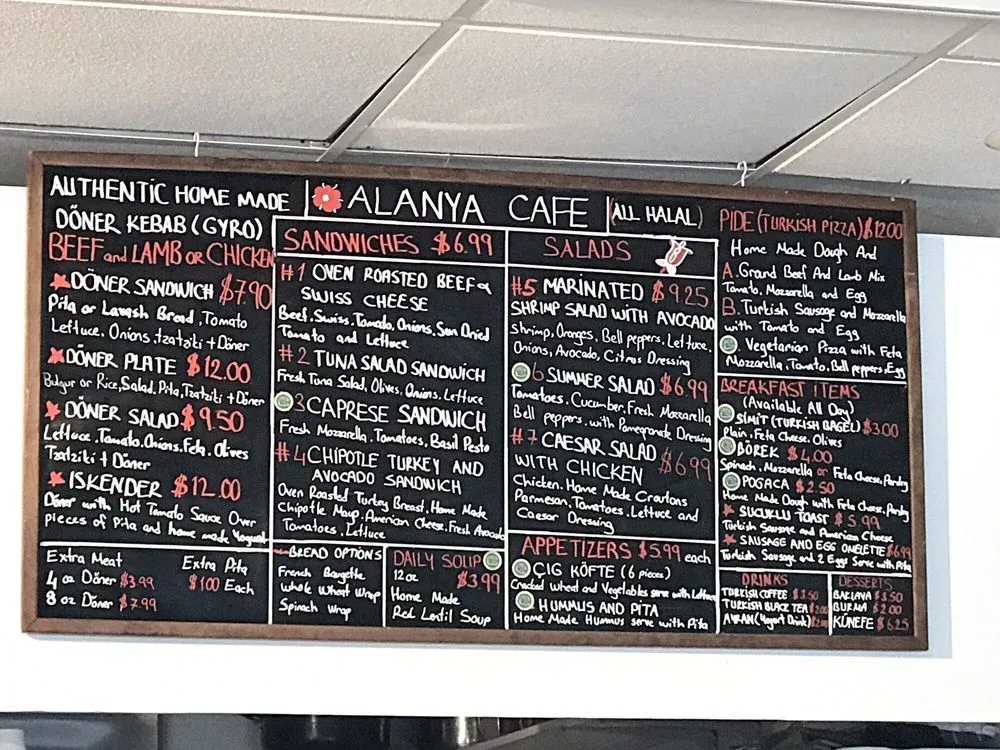 AUTHENTIC HOME MADE
DÖNER KEBAB (GYRO)
BEEF and LAMB OR CHICKEN
DÖNER SANDWICH $7.90
Pita or Lavash Bread, Tomato
Lettuce, Onions, tzatziki + Döner
DÖNER PLATE $12.00
Bulgur or Rice, Salad, Pita, Tzatziki + Döner
DÖNER SALAD $9.50
Lettuce, Tomato, Onions, Feta, Olives
Tzatziki + Döner
ISKENDER $12.00
Döner with Hot Tomato Sauce Over
pieces of Pita and home made Yogurt
Extra Meat
4 oz Döner $3.99
8 oz Döner $7.99
Extra Pita
$1.00 Each
ALANYA CAFE (ALL HALAL)
SANDWICHES $6.99
#1 OVEN ROASTED BEEF &
SWISS CHEESE
Beef, Swiss, Tomato, Onions, Sun Dried
Tomato and Lettuce
#2 TUNA SALAD SANDWICH
Fresh Tuna Salad, Olives, Onions, Lettuce
3 CAPRESE SANDWICH
Fresh Mozzarella, Tomatoes, Basil Pesto
#4 CHIPOTLE TURKEY AND
AVOCADO SANDWICH
Oven Roasted Turkey Breast, Home Made
Chipotle Mayo, American Cheese, Fresh Avocado
Tomatoes, Lettuce
BREAD OPTIONS
French Baugette
Whole Wheat Wrap
Spinach Wrap
DAILY SOUP
12 oz $3.99
Home Made
Red Lentil Soup
SALADS
#5 MARINATED $9.25
SHRIMP SALAD WITH AVOCADO
Shrimp, Oranges, Bell peppers, Lettuce,
Onions, Avocado, Citrus Dressing
6 SUMMER SALAD $6.99
Tomatoes, Cucumber, Fresh Mozzarella
Bell peppers, with Pomegranate Dressing
#7 CAESAR SALAD $6.99
WITH CHICKEN
Chicken, Home Made Croutons
Parmesan, Tomatoes, Lettuce and
Caesar Dressing
APPETIZERS $5.99 each
ÇIG KÖFTE (6 pieces)
Cracked Wheat and Vegetables serve with Lettuce
HUMMUS AND PITA
Home Made Hummus serve with Pita
PIDE (TURKISH PIZZA) $12.00
Home Made Dough And
A. Grand Beef And Lamb Mix
Tomato, Mozzarella and Egg
B. Turkish Sausage and Mozzarella
with Tomato and Egg
Vegetarian Pizza with Feta
Mozzarella, Tomato, Bell peppers, Egg
BREAKFAST ITEMS
(Available All Day)
SIMIT (TURKISH BAGEL) $3.00
Plain, Feta Cheese, Olives
BÖREK $4.00
Spinach, Mozzarella or Feta Cheese, Parsley
POGACA $2.50
Home Made Dough with Feta Cheese, Parsley
SUCUKLU TOAST $5.99
Turkish Sausage and American Cheese
SAUSAGE AND EGG OMELETTE $6.99
Turkish Sausage and 2 Eggs Serve with Pita
DRINKS
TURKISH COFFEE $3.50
TURKISH BLACK TEA $2.00
AYRAN (Yogurt Drink) $2.00
DESSERTS
BAKLAVA $3.50
BURMA $2.00
KÜNEFE $6.25